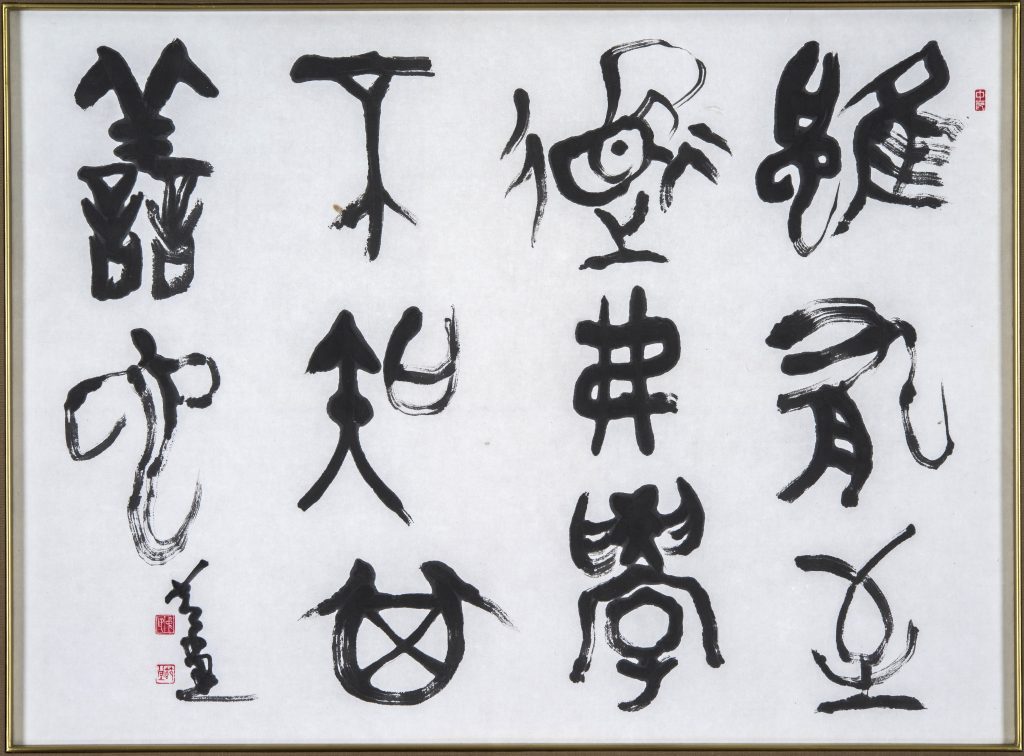 雖有至
道弗學
不知其
善也